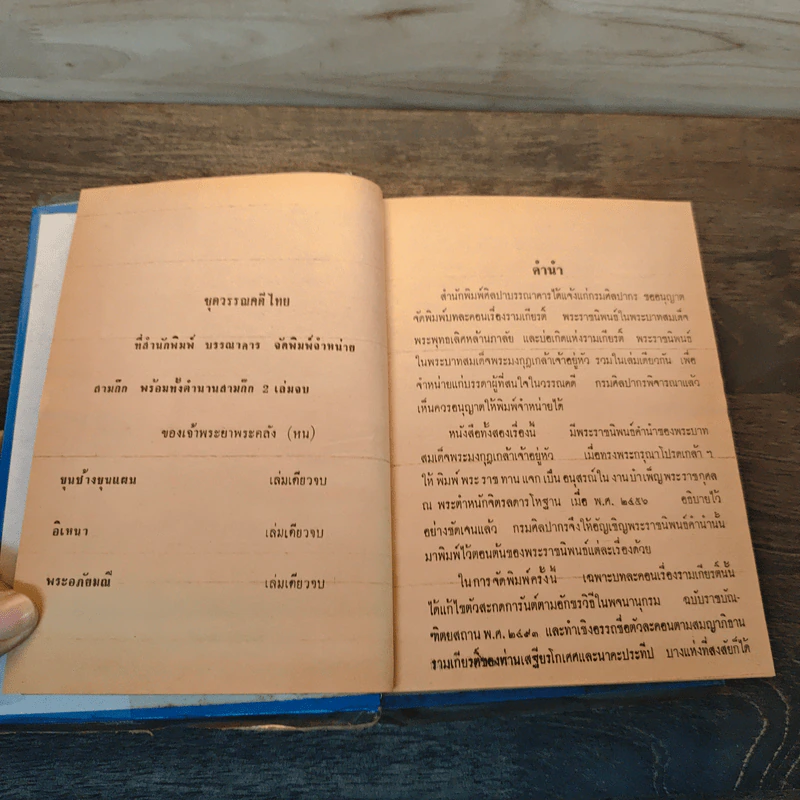 ชุดวรรณคดีไทย
ที่สำนักพิมพ์ บรรณาคาร จัดพิมพ์จำหน่าย
สามก๊ก พร้อมทั้งตำนานสามก๊ก 2 เล่มจบ
ของเจ้าพระยาพระคลัง (หน)
ขุนช้างขุนแผน เล่มเดียวจบ
อิเหนา เล่มเดียวจบ
พระอภัยมณี เล่มเดียวจบ
คำนำ
สำนักพิมพ์ศิลปาบรรณาคารได้แจ้งแก่กรมศิลปากร ขออนุญาต
จัดพิมพ์บทละคอนเรื่องรามเกียรติ์ พระราชนิพนธ์ในพระบาทสมเด็จ
พระพุทธเลิศหล้านภาลัย และบ่อเกิดแห่งรามเกียรติ์ พระราชนิพนธ์
ในพระบาทสมเด็จพระมงกุฎเกล้าเจ้าอยู่หัว รวมในเล่มเดียวกัน เพื่อ
จำหน่ายแก่บรรดาผู้ที่สนใจในวรรณคดี กรมศิลปากรพิจารณาแล้ว
เห็นควรอนุญาตให้พิมพ์จำหน่ายได้
หนังสือทั้งสองเรื่องนี้ มีพระราชนิพนธ์คำนำของพระบาท
สมเด็จพระมงกุฎเกล้าเจ้าอยู่หัว เมื่อทรงพระกรุณาโปรดเกล้า ฯ
ให้ พิมพ์ พระ ราช ทาน แจก เป็น อนุสรณ์ใน งาน บำเพ็ญ พระ ราช กุศล
ณ พระตำหนักจิตรลดารโหฐาน เมื่อ พ.ศ. ๒๔๕๖ อธิบายไว้
อย่างชัดเจนแล้ว กรมศิลปากรจึงให้อัญเชิญพระราชนิพนธ์คำนำนั้น
มาพิมพ์ไว้ตอนต้นของพระราชนิพนธ์แต่ละเรื่องด้วย
ในการจัดพิมพ์ครั้งนี้ เฉพาะบทละคอนเรื่องรามเกียรติ์นั้น
ได้แก้ไขตัวสะกดการันต์ตามอักขรวิธีในพจนานุกรม ฉบับราชบัณ-
ฑิตยสถาน พ.ศ. ๒๔๙๓ และทำเชิงอรรถชื่อตัวละคอนตามสมญาภิธาน
รามเกียรติ์ของท่านเสฐียรโกเศศและนาคะประทีป บางแห่งที่สงสัยก็ได้